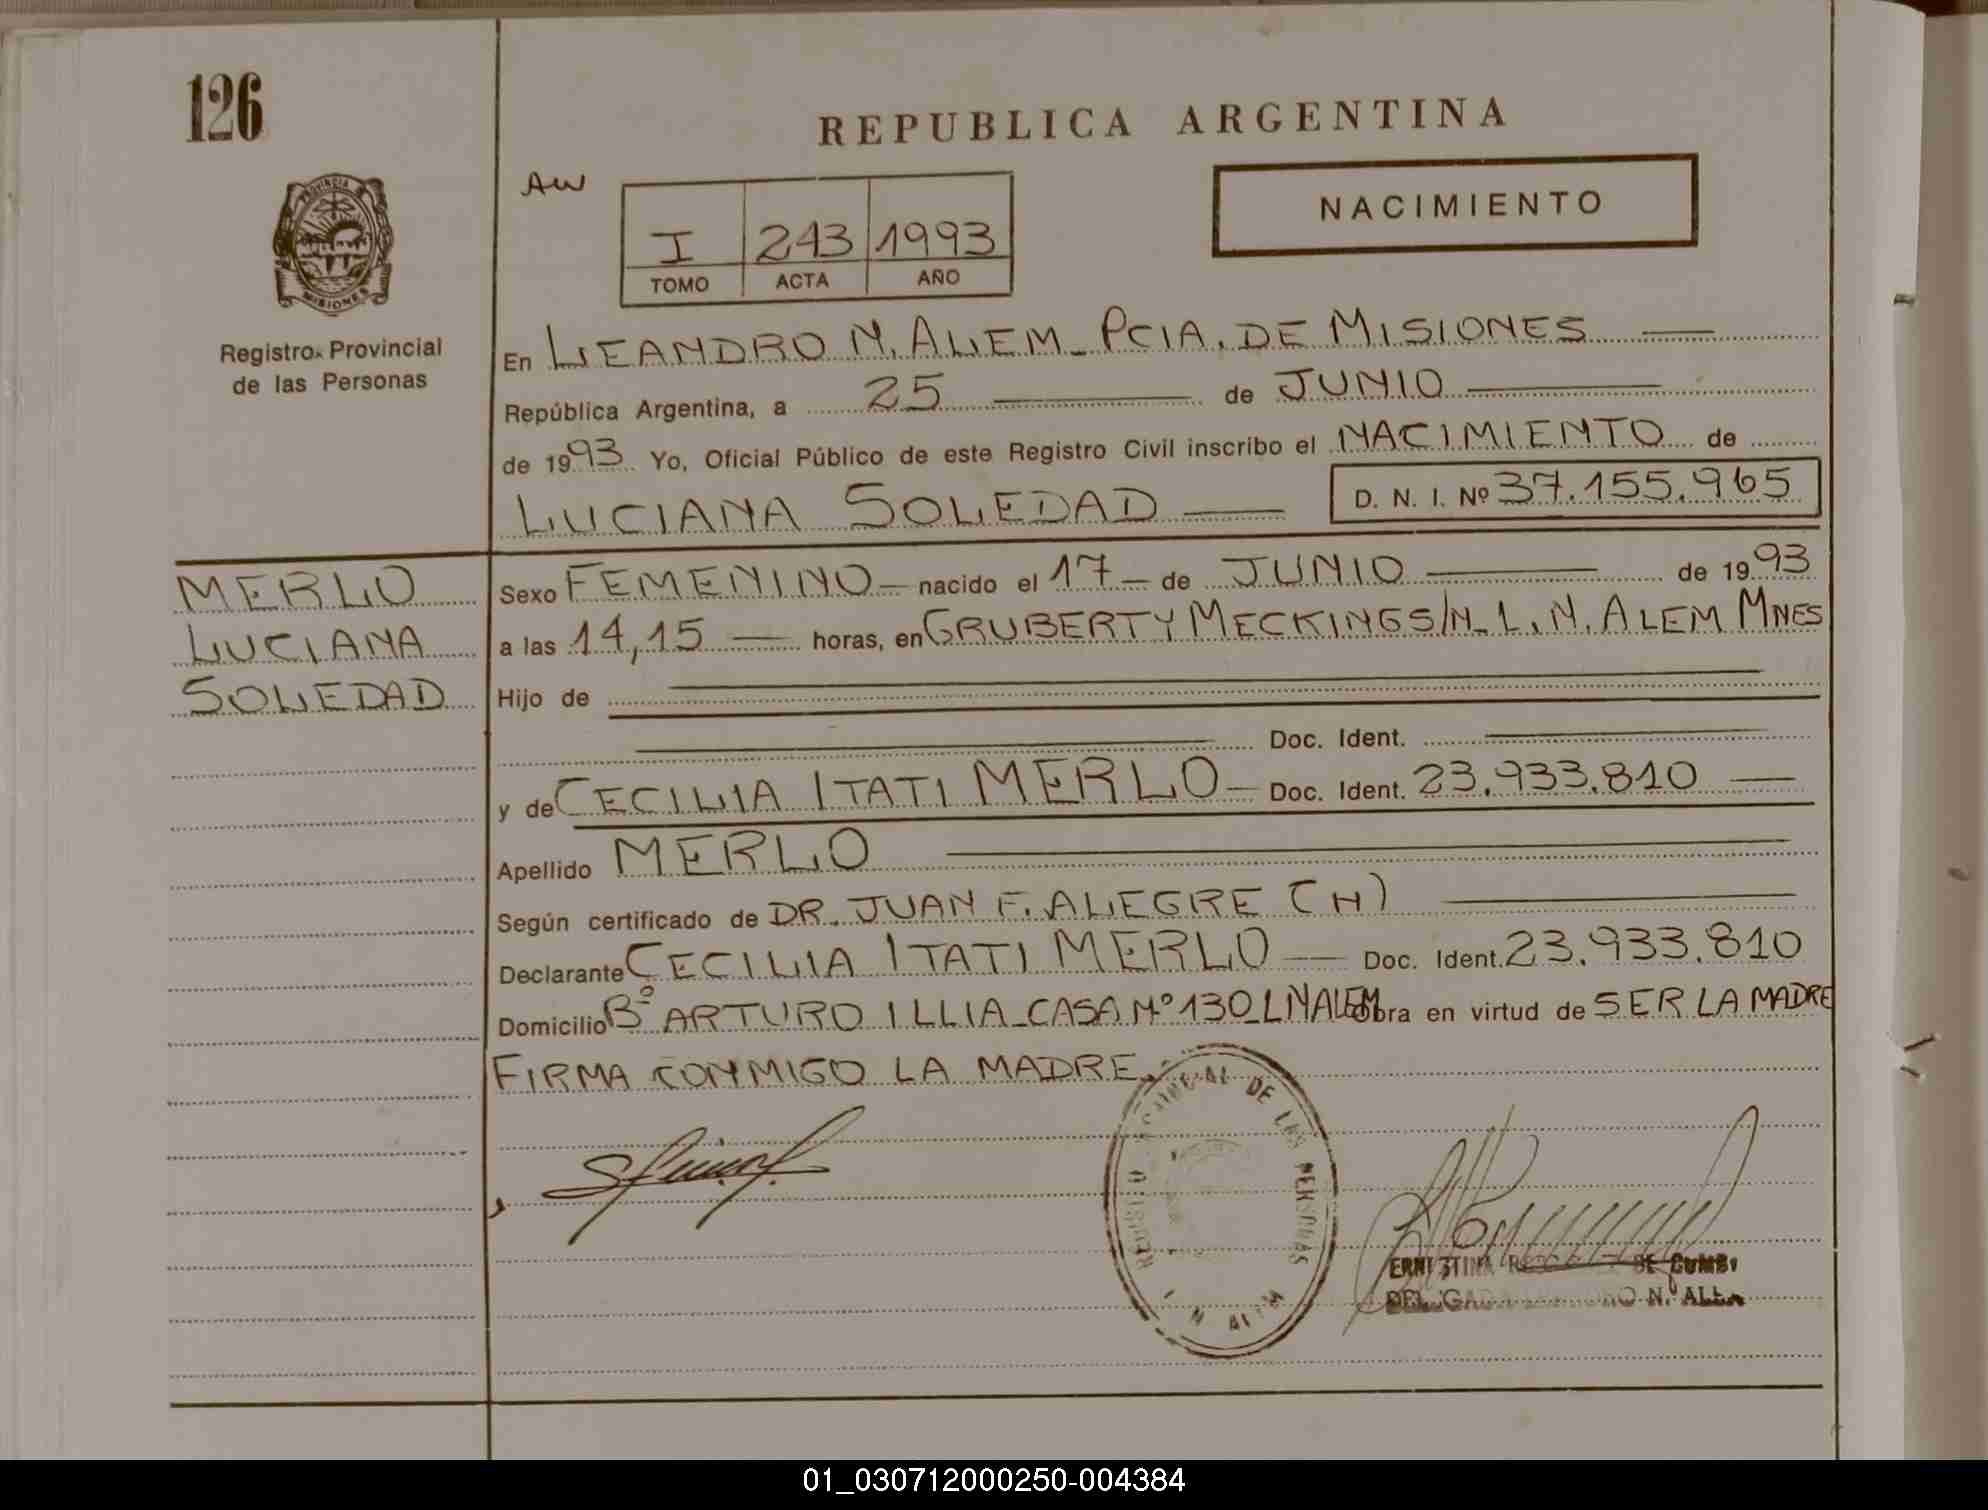 126
REPUBLICA ARGENTINA
AW
I 243 1993
TOMO ACTA AÑO
NACIMIENTO
PROVINCIA DE
MISIONES
Registro Provincial
de las Personas
En LEANDRO N. ALEM - PCIA. DE MISIONES
República Argentina, a 25 de JUNIO
de 1993 Yo, Oficial Público de este Registro Civil inscribo el NACIMIENTO de
LUCIANA SOLEDAD D. N. I. Nº 37.155.965
MERLO
LUCIANA
SOLEDAD
Sexo FEMENINO nacido el 17 de JUNIO de 1993
a las 14,15 horas, en GRUBERT Y MECKING S/N - L. N. ALEM MNES
Hijo de
Doc. Ident.
y de CECILIA ITATI MERLO Doc. Ident. 23.933.810
Apellido MERLO
Según certificado de DR. JUAN F. ALEGRE (H)
Declarante CECILIA ITATI MERLO Doc. Ident. 23.933.810
Domicilio Bº ARTURO ILLIA - CASA Nº 130 - L N ALEM Obra en virtud de SER LA MADRE
FIRMA CONMIGO LA MADRE.
DE LAS PERSONAS
N ALEM
DE
N. ALEM
01_030712000250-004384